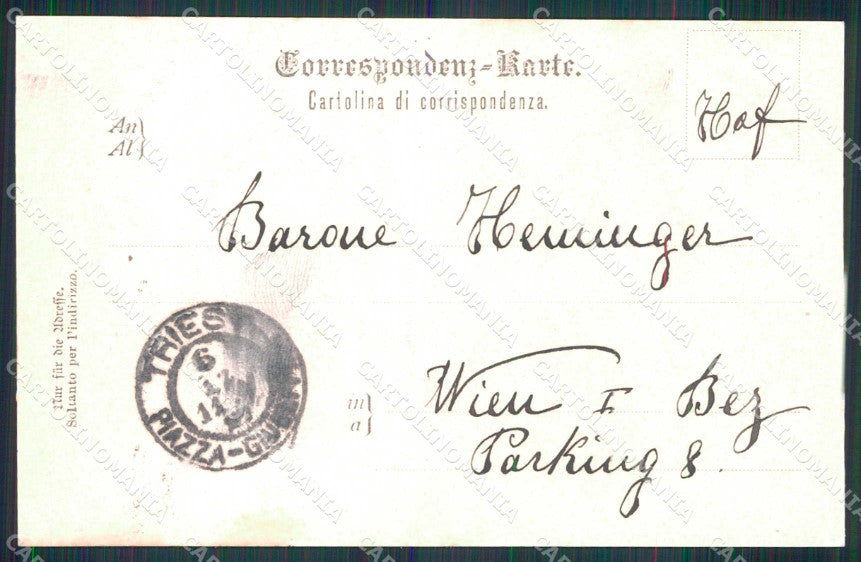 Correspondenz-Karte.
Cartolina di corrispondenza.
Haf
An
Al
Barone Heminger
Nur für die Adresse.
Soltanto per l'indirizzo.
TRIES
6
14
PIAZZA-GIU
in
a
Wien I Bez
Parking 8.
CARTOLINOMANIA